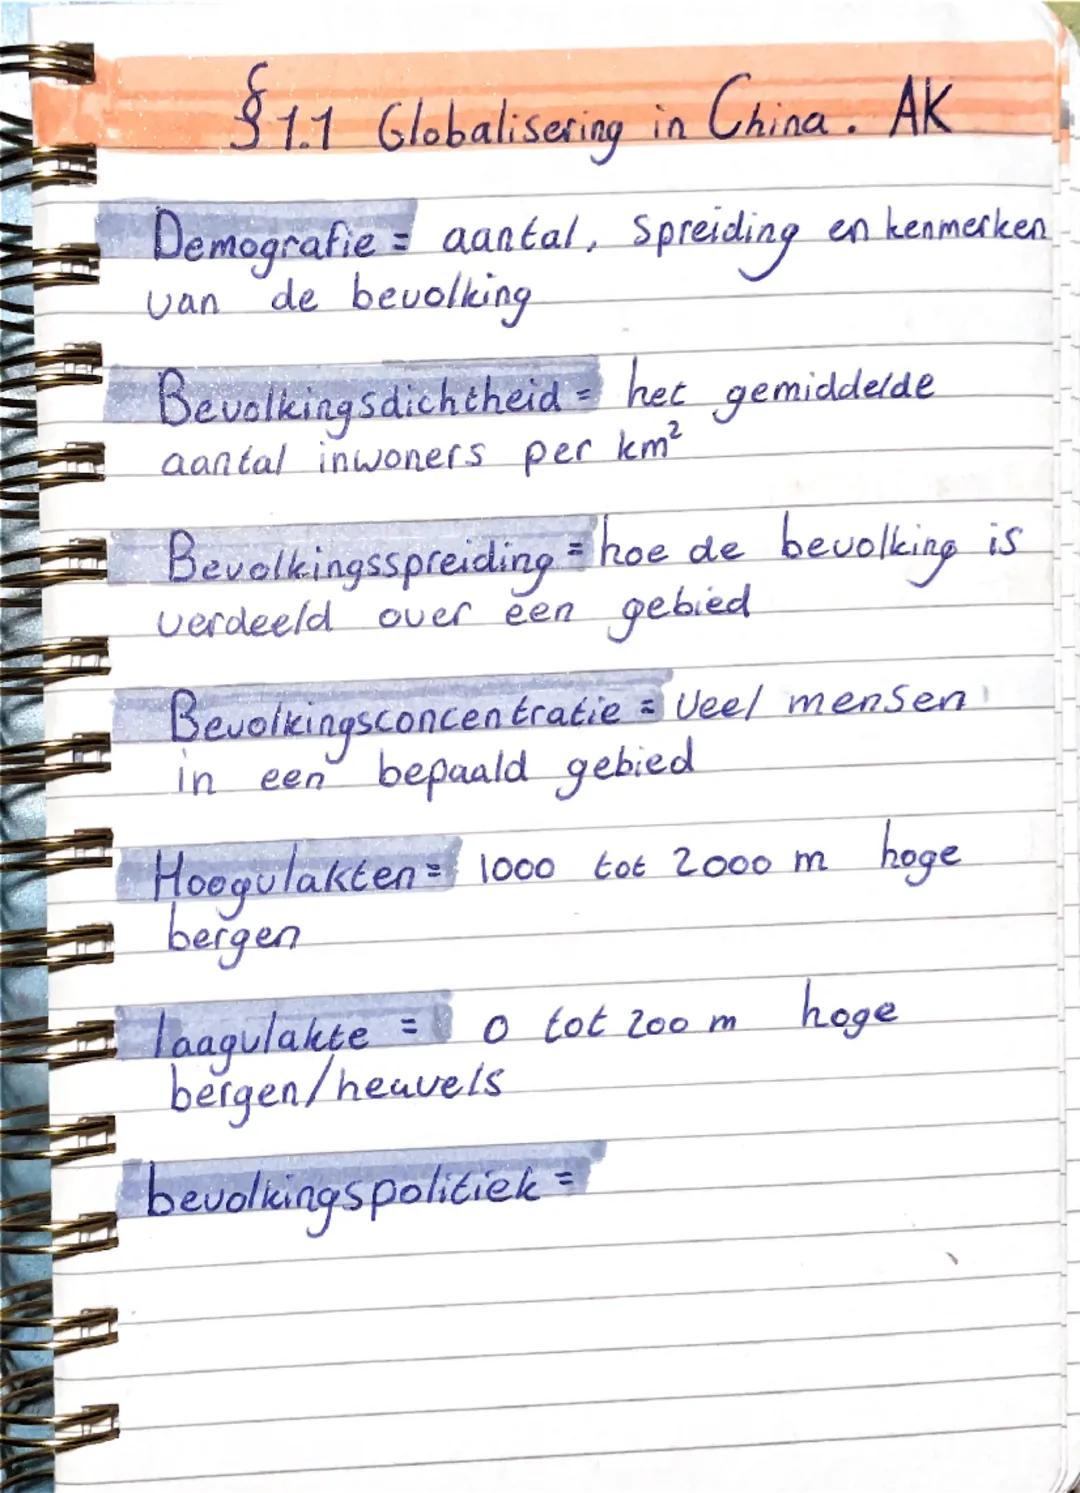 §1.1 Globalisering in China. AK
Demografie = aantal, Spreiding en kenmerken
van de bevolking
Bevolkingsdichtheid = het gemiddelde
aantal inwoners per km²
Bevolkingsspreiding = hoe de bevolking is
verdeeld over een gebied
Bevolkingsconcentratie = Veel mensen
in een bepaald gebied
Hoogvlakten = 1000 tot 2000 m hoge
bergen
laagvlakte = 0 tot 200 m hoge
bergen/heuvels
bevolkingspolitiek =